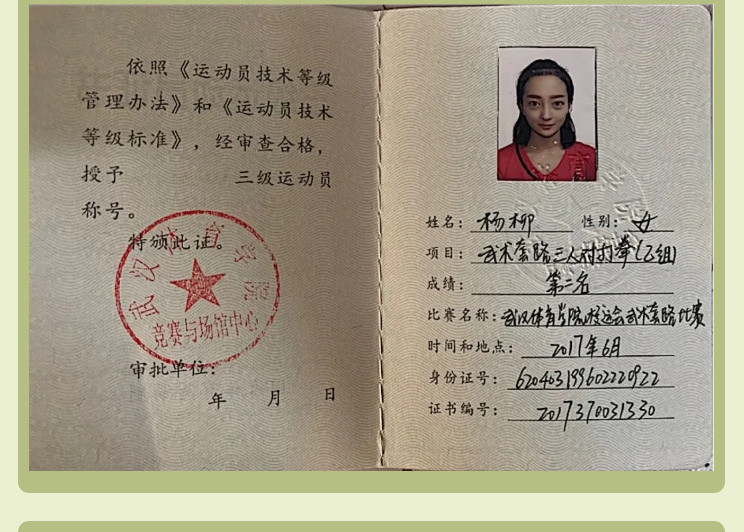 依照《运动员技术等级
管理办法》和《运动员技术
等级标准》，经审查合格，
授予 三级运动员
称号。
特颁此证。
武汉体育学院
竞赛与场馆中心
审批单位：
年 月 日
姓名：杨柳 性别：女
项目：武术套路三人对打拳(乙组)
成绩：第二名
比赛名称：武汉体育学院校运会武术套路比赛
时间和地点：2017年6月
身份证号：620403199602220922
证书编号：2017370031330